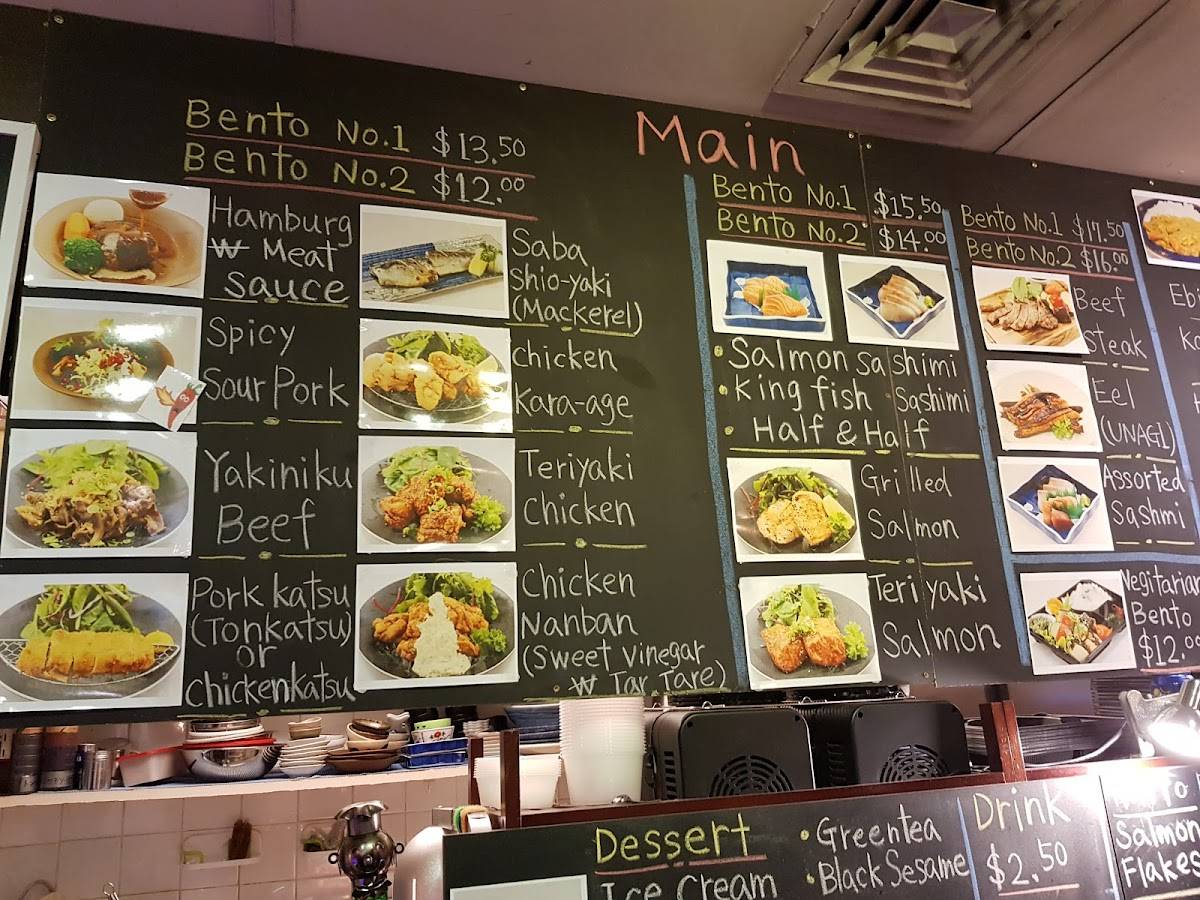 Main
Bento No.1 $13.50
Bento No.2 $12.00
Hamburg
w Meat
sauce
Spicy
Sour Pork
Yakiniku
Beef
Pork katsu
(Tonkatsu)
or
Chickenkatsu
Saba
Shio-yaki
(Mackerel)
Chicken
Kara-age
Teriyaki
Chicken
Chicken
Nanban
(Sweet vinegar
w Tar Tare)
Bento No.1 $15.50
Bento No.2 $14.00
• Salmon sashimi
• King fish Sashimi
• Half & Half
Grilled
Salmon
Teriyaki
Salmon
Bento No.1 $17.50
Bento No.2 $16.00
Beef
steak
Eel
(UNAGI)
Assorted
Sashmi
Vegitarian
Bento
$12.00
Dessert
Ice Cream
• Greentea
• Black Sesame
Drink
$2.50
Salmon
Flakes